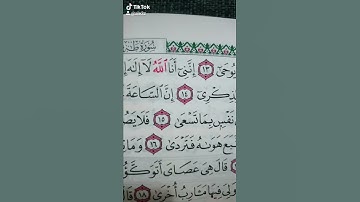 TikTok
سُورَةُ طٰهٰ
يُوحَىٰٓ ١٣ إِنَّنِىٓ أَنَا ٱللَّهُ لَآ إِلَٰهَ
ذِكْرِىٓ ١٤ إِنَّ ٱلسَّاعَةَ
نَفْسٍۭ بِمَا تَسْعَىٰ ١٥ فَلَا يَصُ
تَّبَعَ هَوَىٰهُ فَتَرْدَىٰ ١٦ وَمَا
قَالَ هِىَ عَصَاىَ أَتَوَكَّؤُ
وَلِىَ فِيهَا مَـَٔارِبُ أُخْرَىٰ ١٨ قَا